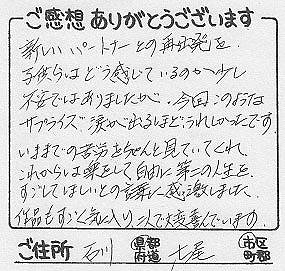 ご感想 ありがとうございます
新しいパートナーとの再出発を
子供らはどう感じているのか少し
不安ではありましたが、今回このような
サプライズ 涙が出るほどうれしかったです
いままでの苦労をちゃんと見ていてくれ
これからは楽をして自由に第二の人生を
すごしてほしいとの言葉に感激しました。
作品もすごく気に入り、二人で大変喜んでいます。
ご住所 石川 都道府県 七尾 市区町郡